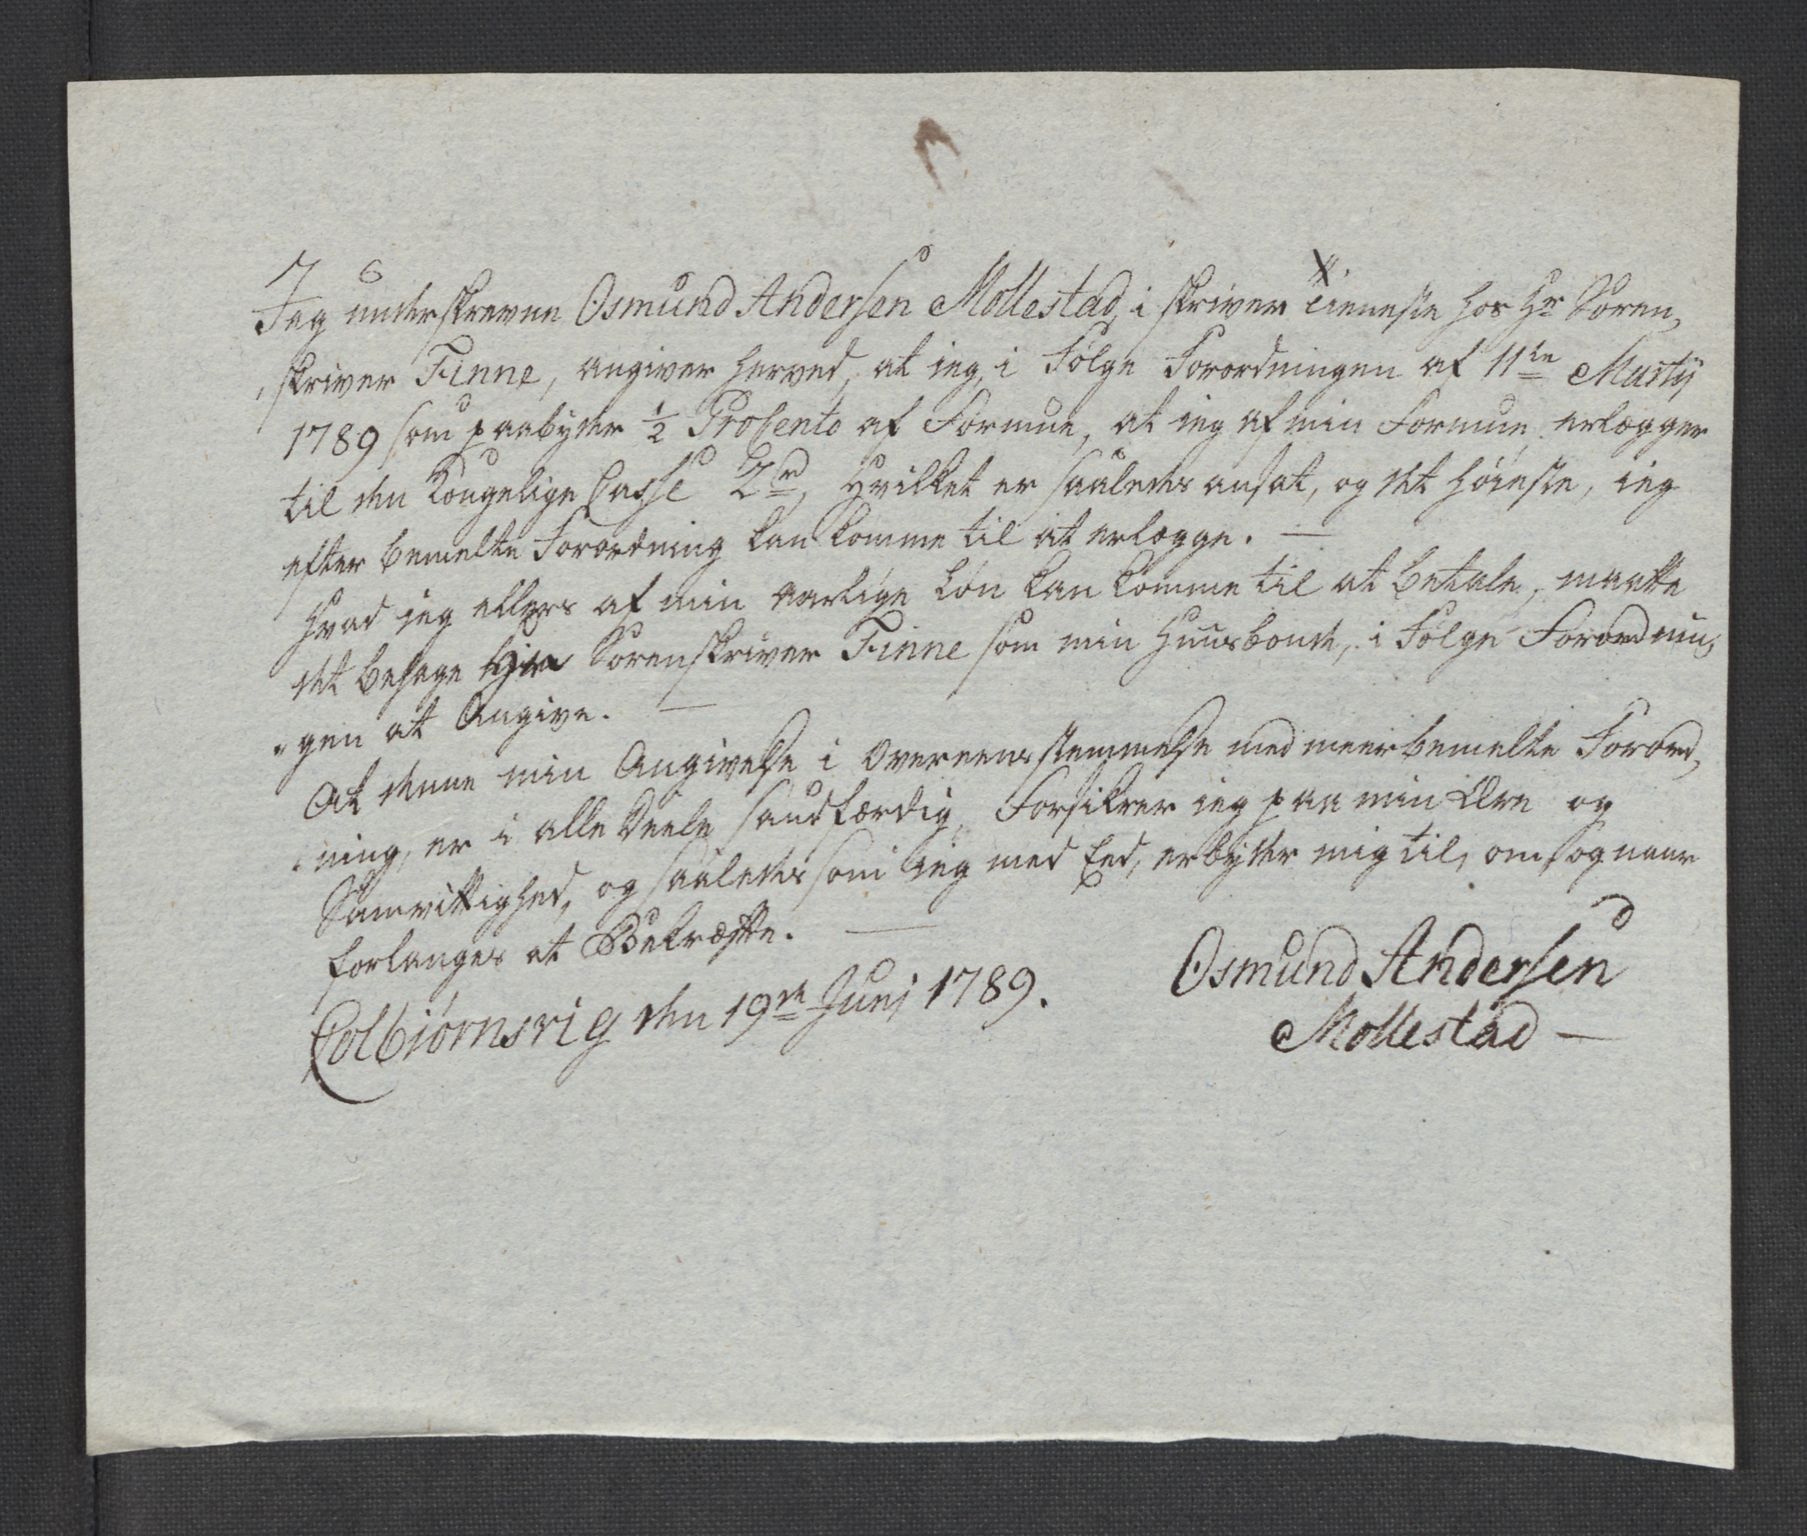 Jeg underskrevne Osmund Andersen Mollestad, i skriver Tieneste hos Hr Soren,
,skriver Finne, angiver herved, at jeg, i Følge Forordningen af 11te Martij
1789 som paabyder 1/2 ProCento af Formue, at jeg af min Formue erlægger
til den Kongelige Casse 2 rd, Hvilket er saaledes ansat, og det høieste, jeg
efter bemelte Forordning kan komme til at erlægge. —
Hvad jeg ellers af min aarlige Løn kan komme til at betale, maatte
det behage Hr Sorenskriver Finne som min Huusbonde, i Følge Forordnin,
"gen at Angive. —
At denne min Angivelse i Overeensstemmelse med meerbemelte Forord,
,ning, er i alle Deele sandfærdig, Forsikrer jeg paa min Ære og
Samvittighed, og saaledes som jeg med Eed, erbyder mig til, om og naar
forlanges at Bekræfte. —
Colbiørnsvig den 19de Junj 1789.
Osmund Andersen
Mollestad —